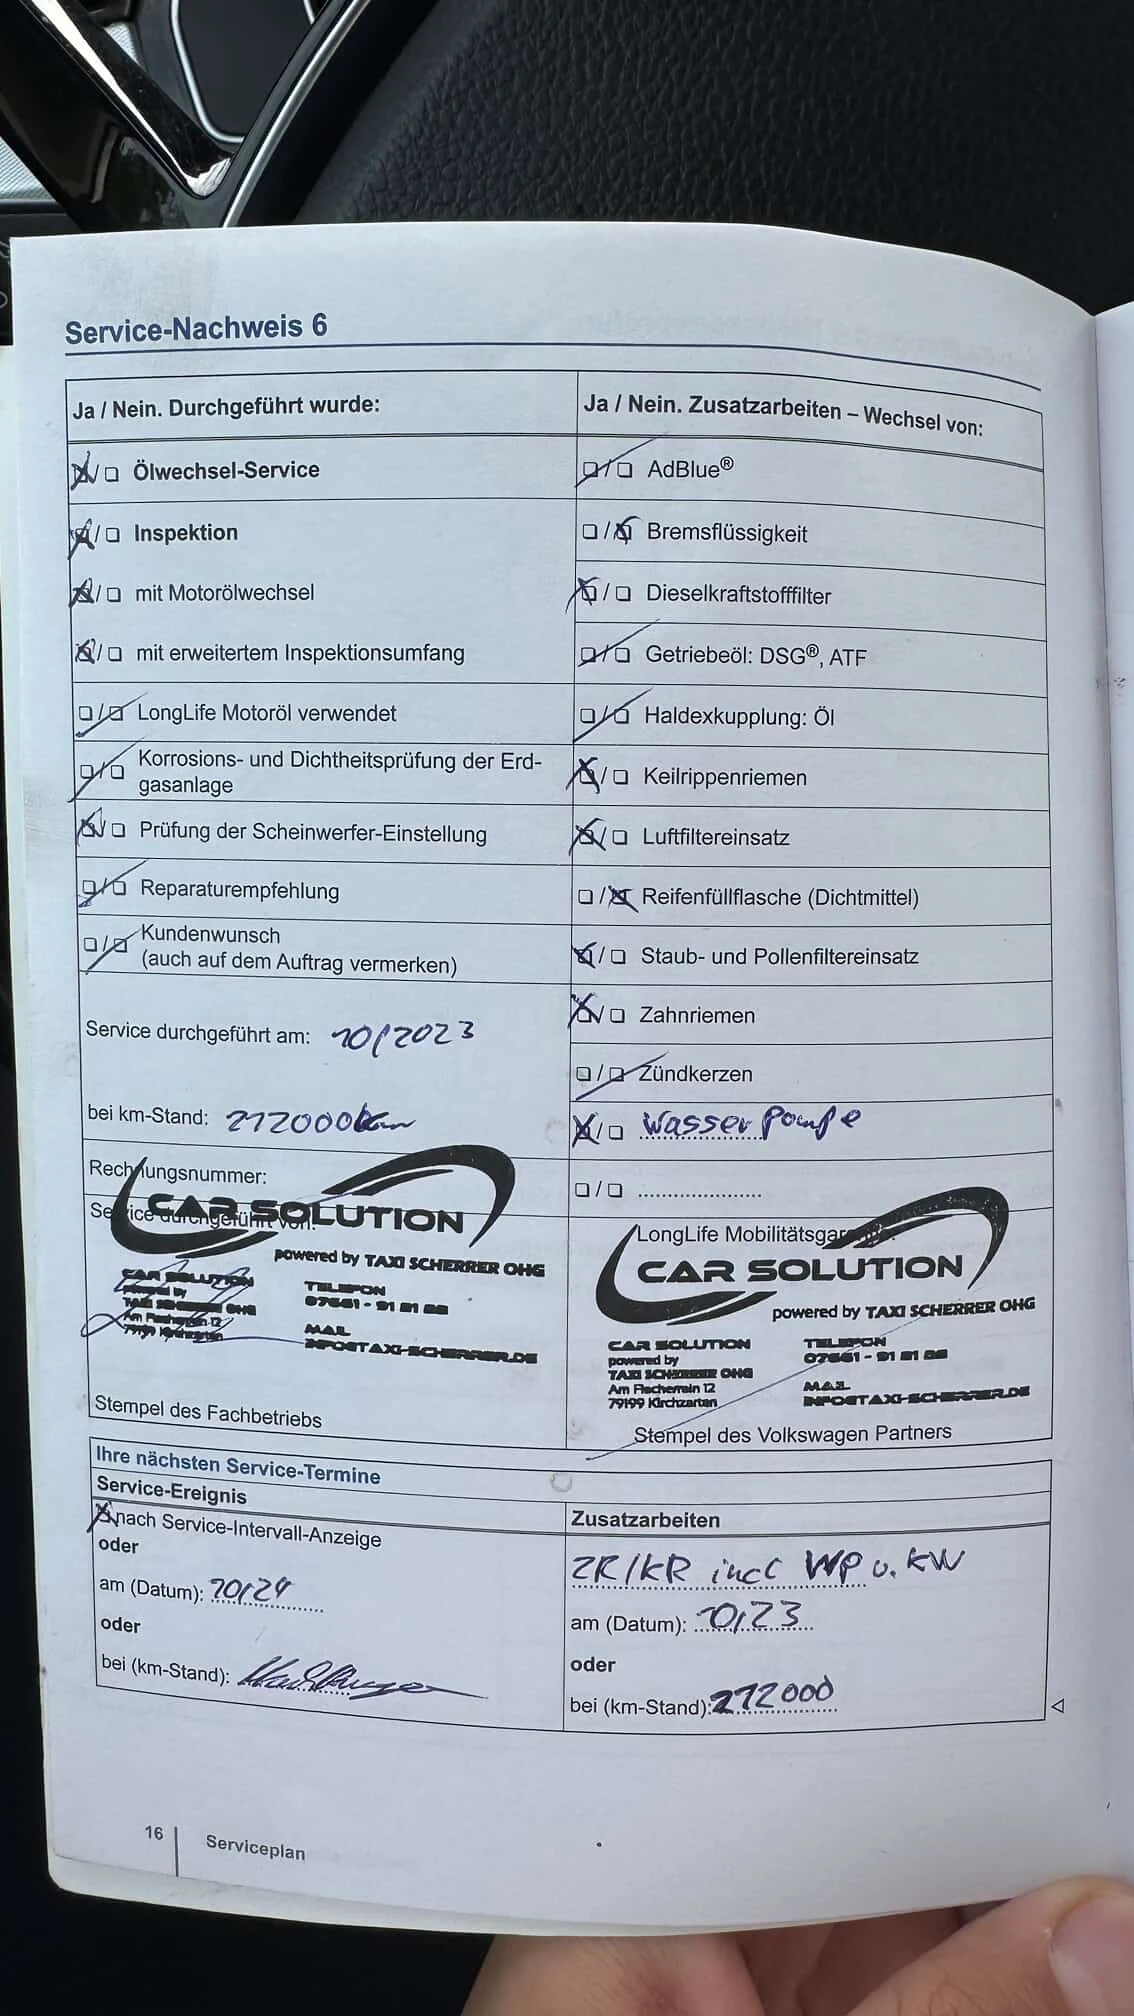 Service-Nachweis 6
Ja / Nein. Durchgeführt wurde:
Ölwechsel-Service
Inspektion
mit Motorölwechsel
mit erweitertem Inspektionsumfang
LongLife Motoröl verwendet
Korrosions- und Dichtheitsprüfung der Erd-
gasanlage
Prüfung der Scheinwerfer-Einstellung
Reparaturempfehlung
Kundenwunsch
(auch auf dem Auftrag vermerken)
Service durchgeführt am: 10/2023
bei km-Stand: 212000km
Rechnungsnummer:
Service durchgeführt von:
CAR SOLUTION
powered by TAXI SCHERRER OHG
CAR SOLUTION
powered by
TAXI SCHERRER OHG
Am Fischerrain 12
79199 Kirchzarten
TELEFON
07661 - 91 21 22
MAIL
INFO@TAXI-SCHERRER.DE
Stempel des Fachbetriebs
Ja / Nein. Zusatzarbeiten – Wechsel von:
AdBlue®
Bremsflüssigkeit
Dieselkraftstofffilter
Getriebeöl: DSG®, ATF
Haldexkupplung: Öl
Keilrippenriemen
Luftfiltereinsatz
Reifenfüllflasche (Dichtmittel)
Staub- und Pollenfiltereinsatz
Zahnriemen
Zündkerzen
Wasser Pompe
LongLife Mobilitätsgar
CAR SOLUTION
powered by TAXI SCHERRER OHG
CAR SOLUTION
powered by
TAXI SCHERRER OHG
Am Fischerrain 12
79199 Kirchzarten
TELEFON
07661 - 91 21 22
MAIL
INFO@TAXI-SCHERRER.DE
Stempel des Volkswagen Partners
Ihre nächsten Service-Termine
Service-Ereignis
nach Service-Intervall-Anzeige
oder
am (Datum): 10/24
oder
bei (km-Stand):
Zusatzarbeiten
ZR/KR incl WP u. KW
am (Datum): 10/23
oder
bei (km-Stand): 212000
16
Serviceplan